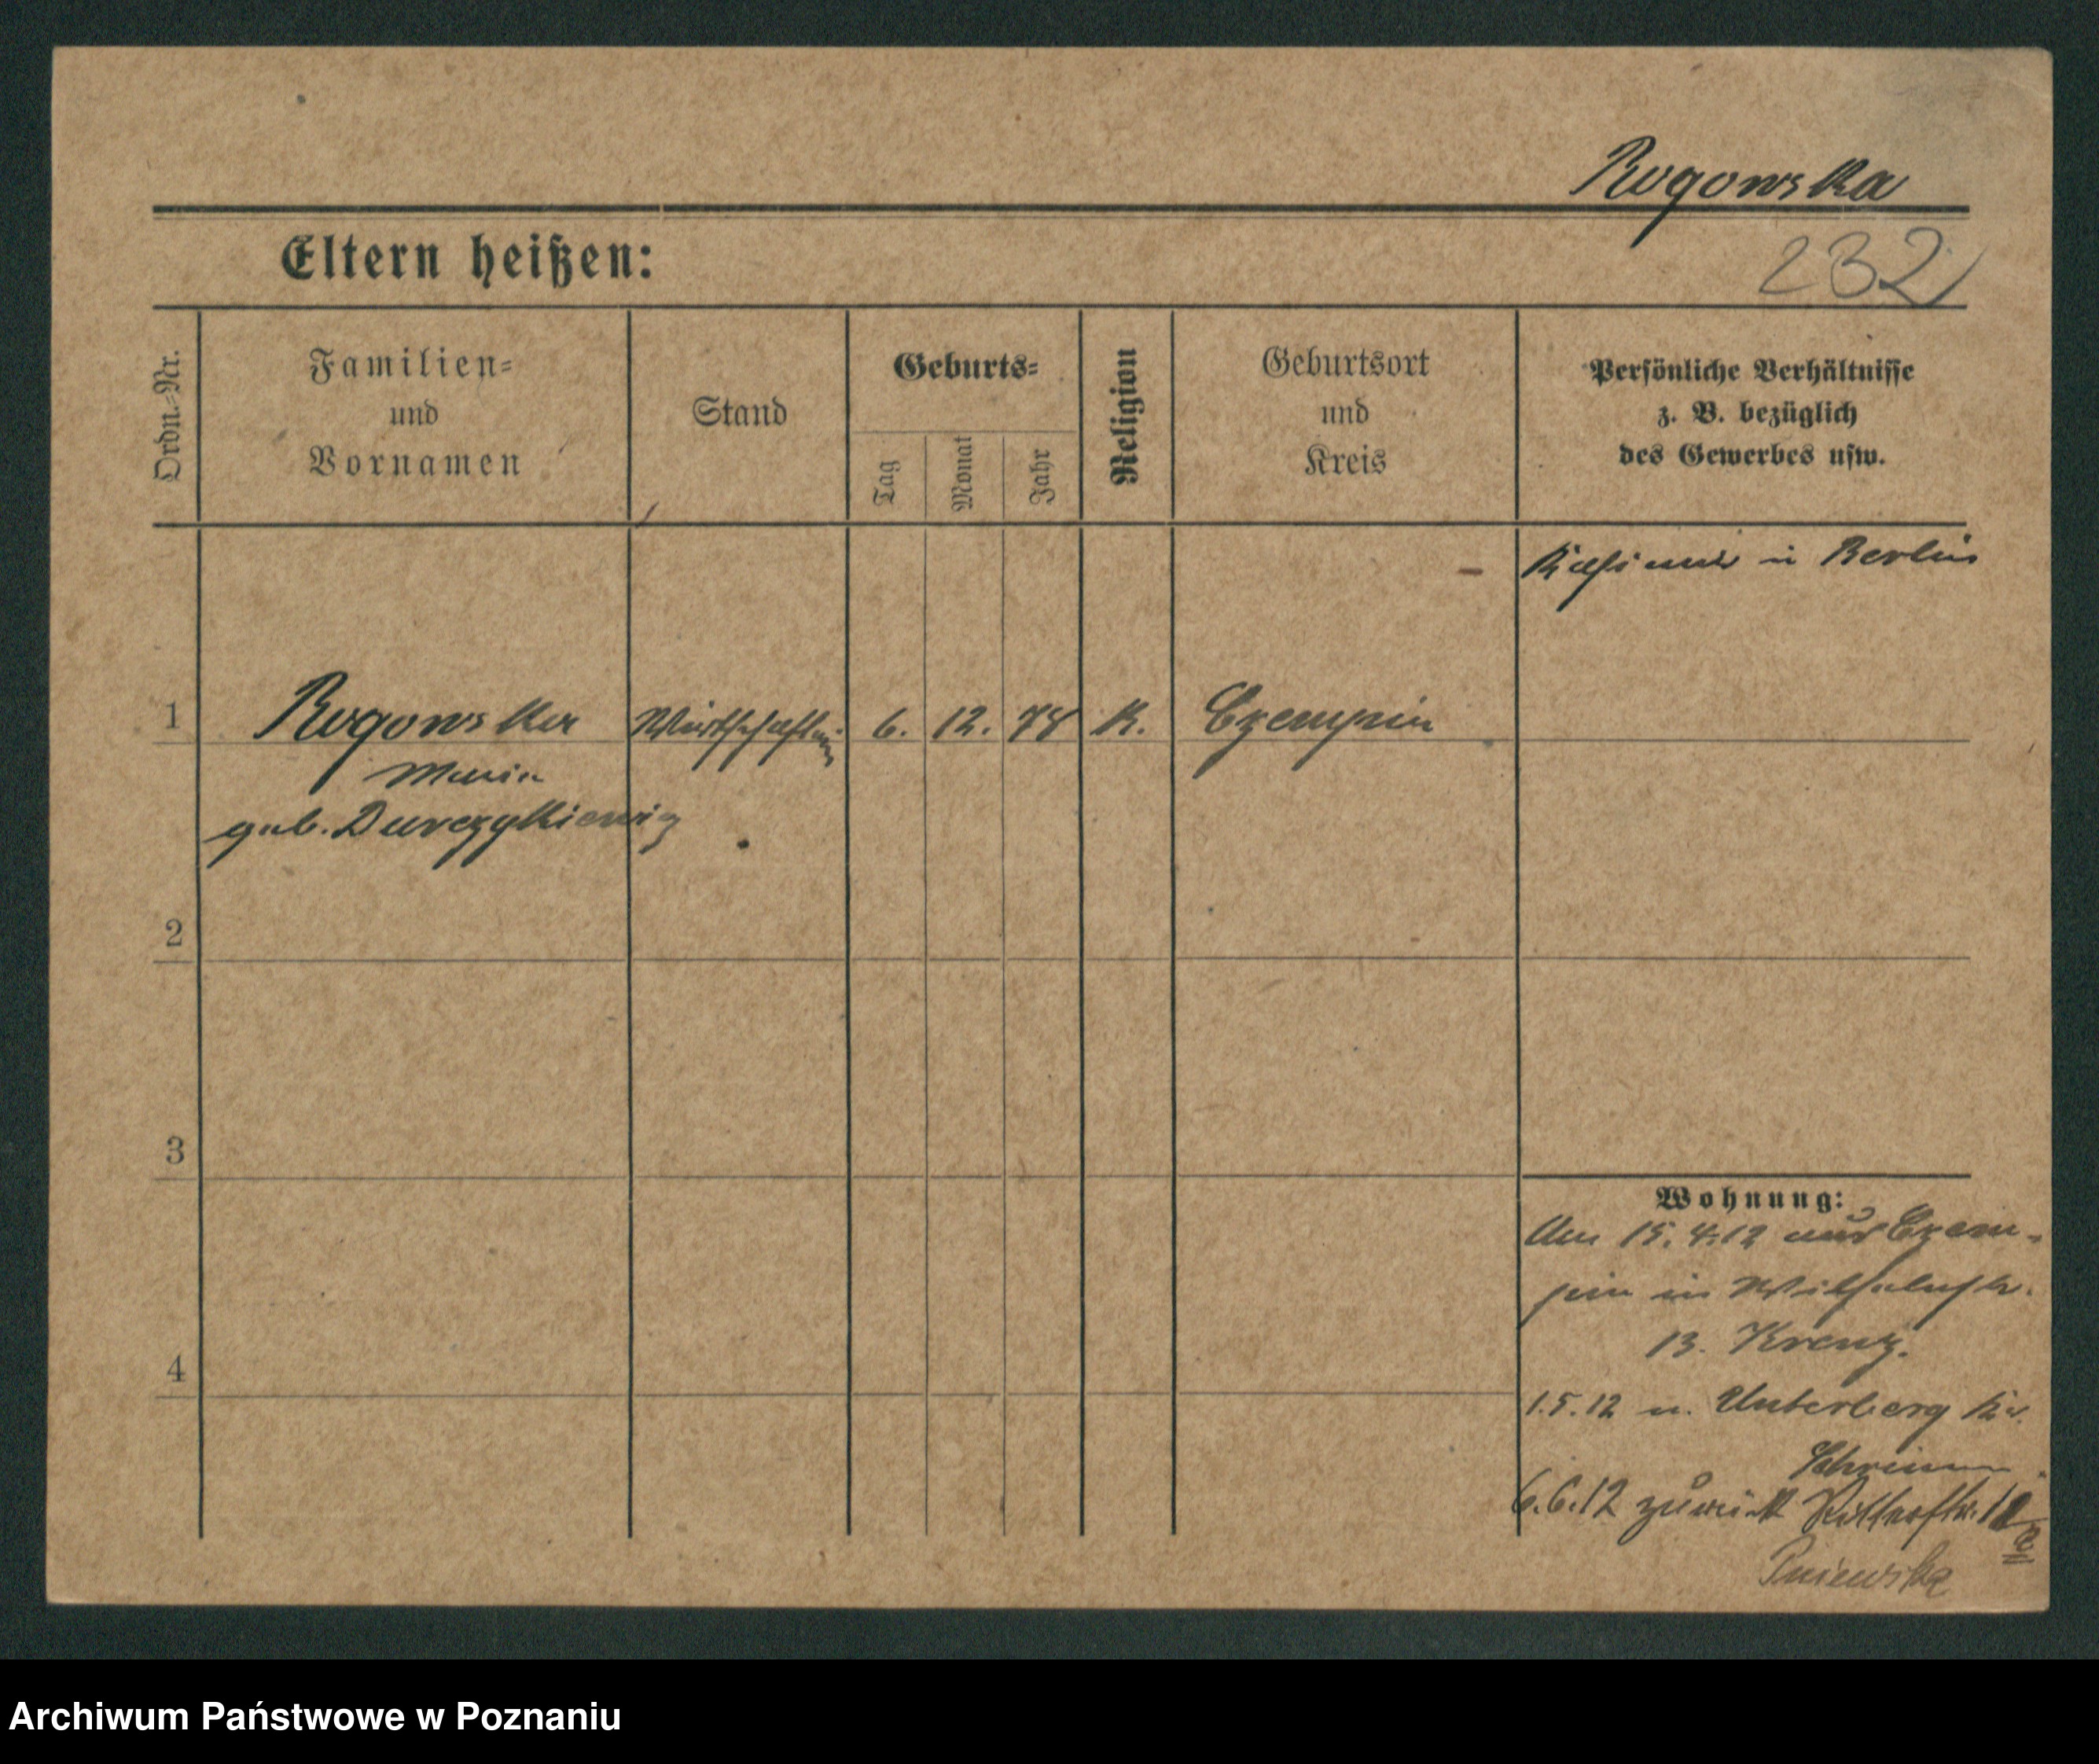 Rogowska
Eltern heißen:
232
Ordn.-Nr.
Familien-
und
Vornamen
Stand
Geburts-
Tag
Monat
Jahr
Religion
Geburtsort
und
Kreis
Persönliche Verhältnisse
z. B. bezüglich
des Gewerbes usw.
Kasimir in Berlin
1
Rogowska
Wirtschafterin
6.
12.
78
K.
Czempin
Maria
geb. Durczykiewicz
2
3
4
Wohnung:
Am 15.4.12 aus Czem-
pin in Wilhelmstr.
13. Kreuz.
1.5.12 n. Unterberg Kr.
Schrimm
6.6.12 zurück Ritterstr.
Pniewska
Archiwum Państwowe w Poznaniu